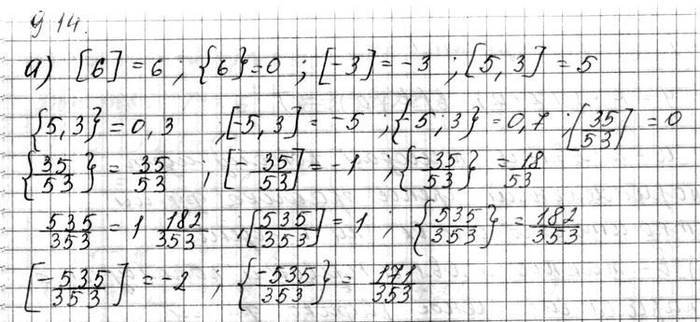 9 14.
а) [6] = 6; {6} = 0; [-3] = -3; [5,3] = 5
{5,3} = 0,3; [-5,3] = -5; {-5;3} = 0,7; [35/53] = 0
{35/53} = 35/53; [-35/53] = -1; {-35/53} = 18/53
535/353 = 1 182/353; [535/353] = 1; {535/353} = 182/353
[-535/353] = -2; {-535/353} = 171/353